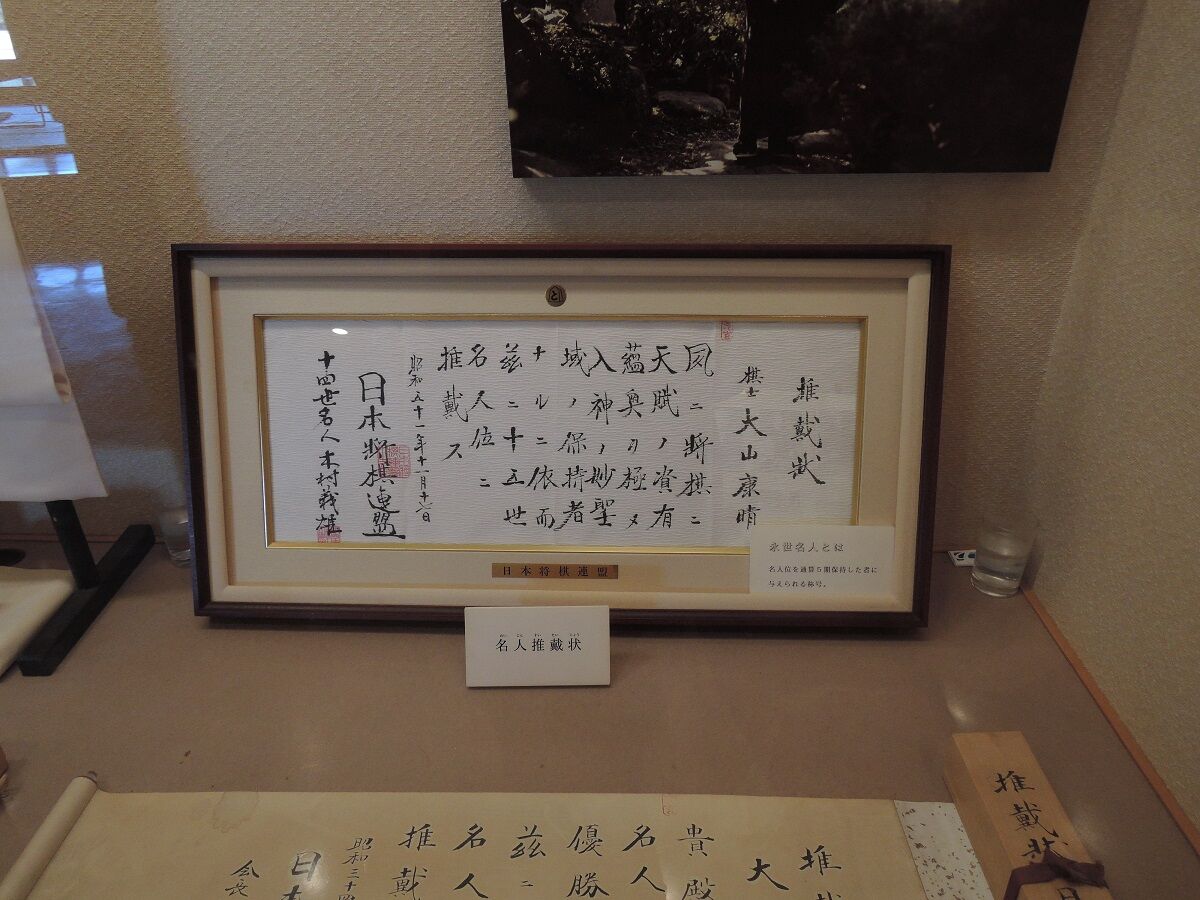 推戴状
棋士 大山康晴
夙ニ将棋ニ
天賦ノ資有リ
蘊奥ヲ極メ
入神ノ妙聖
域ノ保持者
ナルニ依而
茲ニ十五世
名人位ニ
推戴ス
昭和五十一年十一月十七日
日本将棋連盟
十四世名人 木村義雄
と
日本将棋連盟
永世名人とは
名人位を通算5期保持した者に
与えられる称号。
めいじんすいたいじょう
名人推戴状
推戴
大
貴殿
名人
優勝
茲ニ
名人
推戴
昭和三十四
日本
会長
推戴状
日